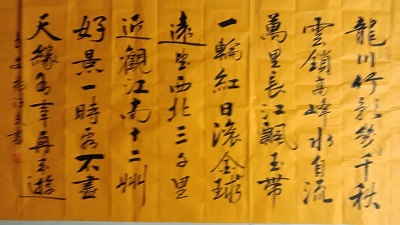 龍川竹影幾千秋
雲鎖高峰水自流
萬里長江飄玉帶
一輪紅日滾金球
遠望西北三千里
近觀江南十二州
好景一時看不盡
天緣有幸再來遊